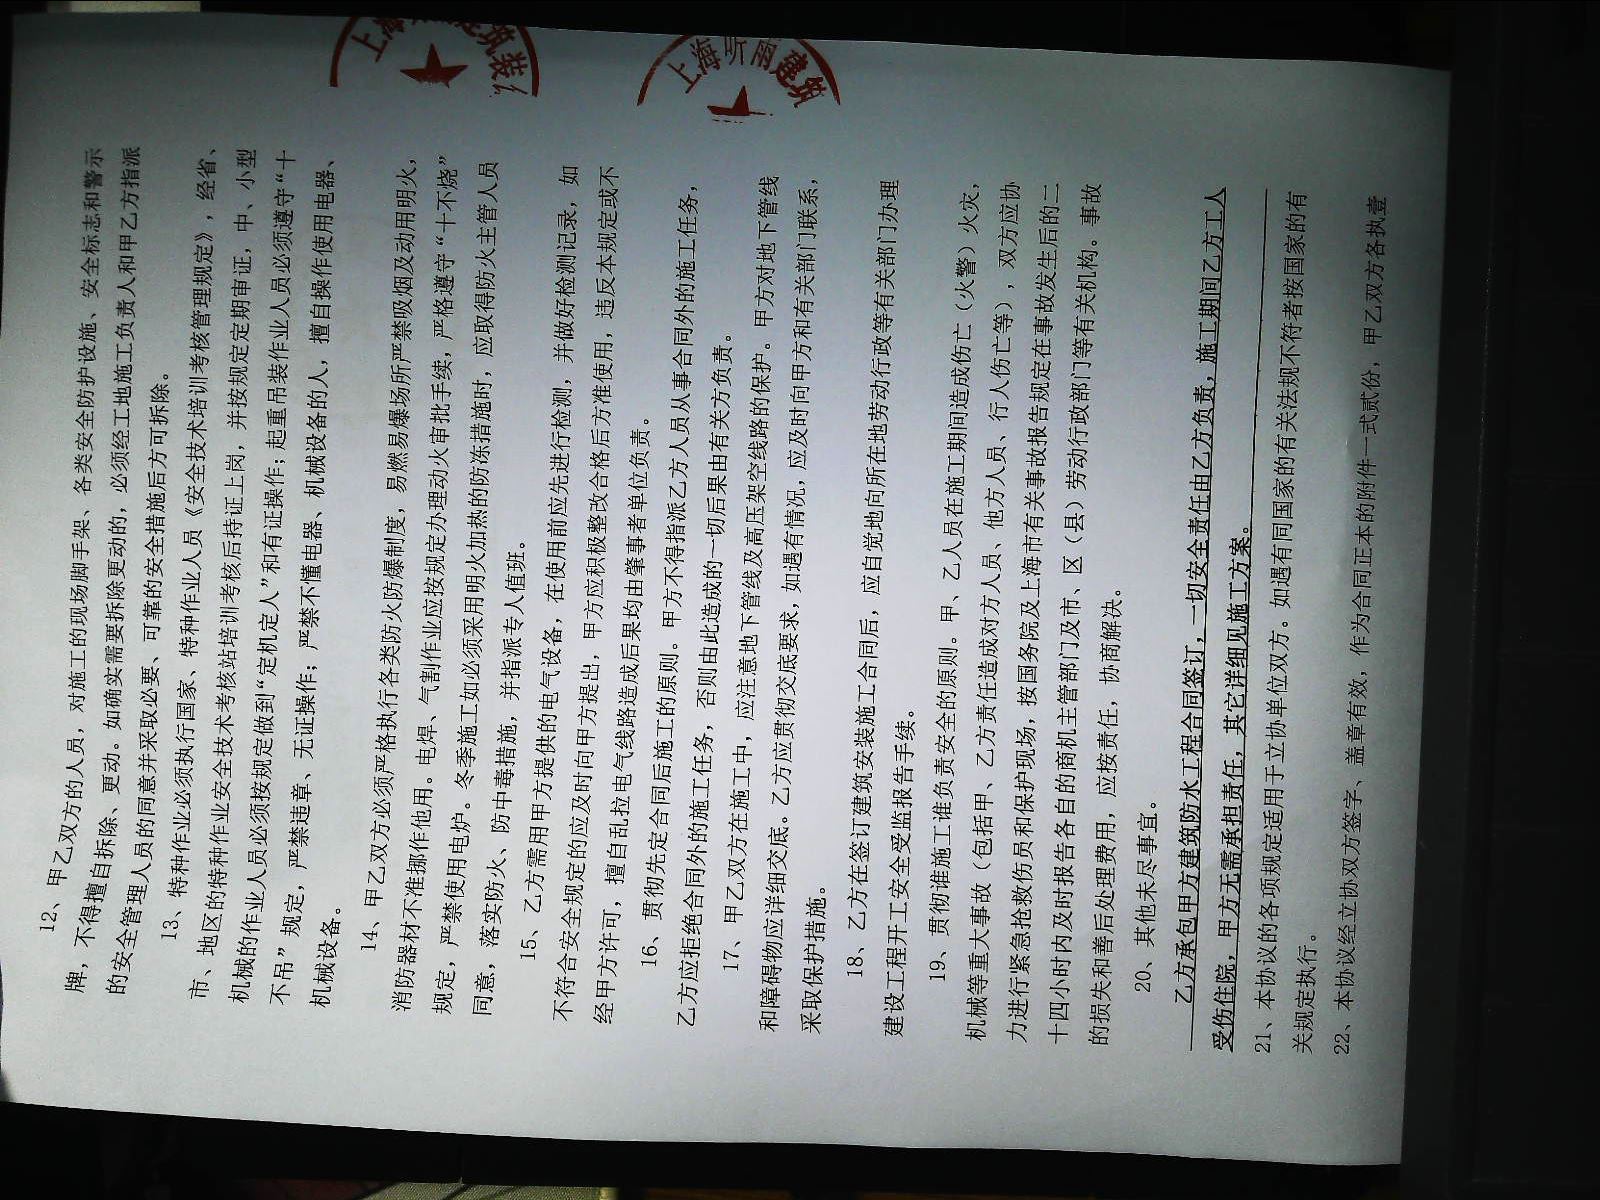 12、甲乙双方的人员，对施工的现场脚手架、各类安全防护设施、安全标志和警示
牌，不得擅自拆除、更动。如确实需要拆除更动的，必须经工地施工负责人和甲乙方指派
的安全管理人员的同意并采取必要、可靠的安全措施后方可拆除。
13、特种作业必须执行国家、特种作业人员《安全技术培训考核管理规定》，经省、
市、地区的特种作业安全技术考核站培训考核后持证上岗，并按规定定期审证，中、小型
机械的作业人员必须按规定做到“定机定人”和有证操作；起重吊装作业人员必须遵守“十
不吊”规定，严禁违章、无证操作；严禁不懂电器、机械设备的人，擅自操作使用电器、
机械设备。
14、甲乙双方必须严格执行各类防火防爆制度，易燃易爆场所严禁吸烟及动用明火，
消防器材不准挪作他用。电焊、气割作业应按规定办理动火审批手续，严格遵守“十不烧”
规定，严禁使用电炉。冬季施工如必须采用明火加热的防冻措施时，应取得防火主管人员
同意，落实防火、防中毒措施，并指派专人值班。
15、乙方需用甲方提供的电气设备，在使用前应先进行检测，并做好检测记录，如
不符合安全规定的应及时向甲方提出，甲方应积极整改合格后方准使用，违反本规定或不
经甲方许可，擅自乱拉电气线路造成后果均由肇事者单位负责。
16、贯彻先定合同后施工的原则。甲方不得指派乙方人员从事合同外的施工任务，
乙方应拒绝合同外的施工任务，否则由此造成的一切后果由有关方负责。
17、甲乙双方在施工中，应注意地下管线及高压架空线路的保护。甲方对地下管线
和障碍物应详细交底。乙方应贯彻交底要求，如遇有情况，应及时向甲方和有关部门联系，
采取保护措施。
18、乙方在签订建筑安装施工合同后，应自觉地向所在地劳动行政等有关部门办理
建设工程开工安全受监报告手续。
19、贯彻谁施工谁负责安全的原则。甲、乙人员在施工期间造成伤亡（火警）火灾，
机械等重大事故（包括甲、乙方责任造成对方人员、他方人员、行人伤亡等），双方应协
力进行紧急抢救伤员和保护现场，按国务院及上海市有关事故报告规定在事故发生后的二
十四小时内及时报告各自的商机主管部门及市、区（县）劳动行政部门等有关机构。事故
的损失和善后处理费用，应按责任，协商解决。
20、其他未尽事宜。
乙方承包甲方建筑防水工程合同签订，一切安全责任由乙方负责，施工期间乙方工人
受伤住院，甲方无需承担责任，其它详细见施工方案。
21、本协议的各项规定适用于立协单位双方。如遇有同国家的有关法规不符者按国家的有
关规定执行。
22、本协议经立协双方签字、盖章有效，作为合同正本的附件一式贰份，甲乙双方各执壹